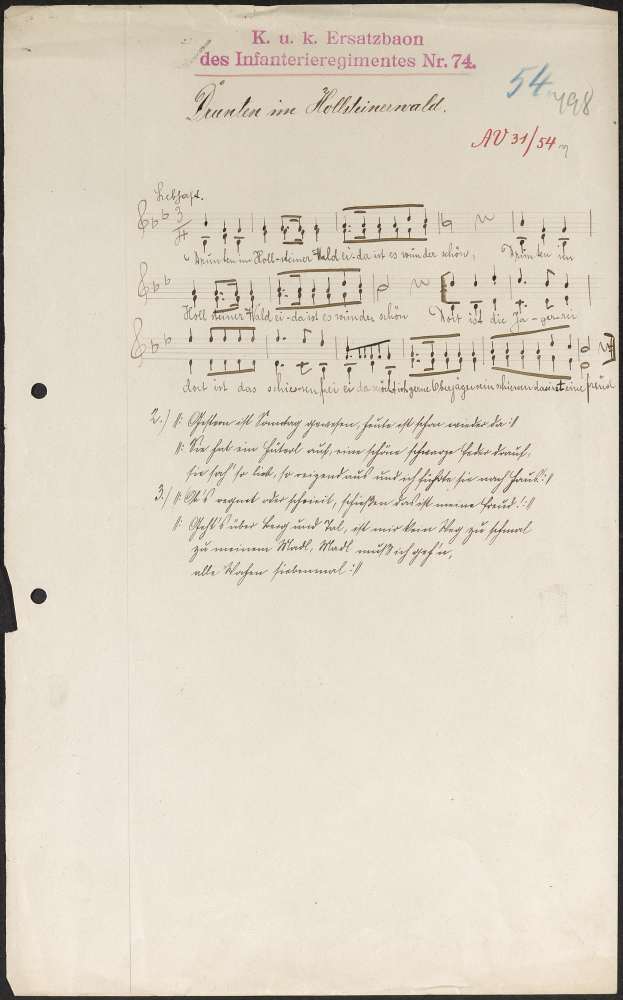 K. u. k. Ersatzbaon
des Infanterieregimentes Nr. 74.
54
498
Drunten im Hollsteinerwald.
AV 31/54
Lebhaft.
Drunten im Holl-steiner Wald ei-da ist es wunder schön, Drunten im
Holl steiner Wald ei-da ist es wunder schön Dort ist die Ja-gerei
dort ist das schies-sen frei ei da möcht ich gerne Oberjäger sein schiessen das ist eine freud
2.) //: Gestern ist Sonntag gewesen, heute ist schon wieder da ://
//: Sie hat ein Hüterl auf, eine schöne schwarze Feder drauf,
sie sah so lieb, so reizend aus und ich führte sie nach Haus! ://
3.) //: Ob's regnet oder schneit, schießen das ist meine Freud! ://
//: Geht's über Berg und Tal, ist mir kein Weg zu schmal
zu meinem Madl, Madl muß ich geh'n,
alle Wochen siebenmal ://